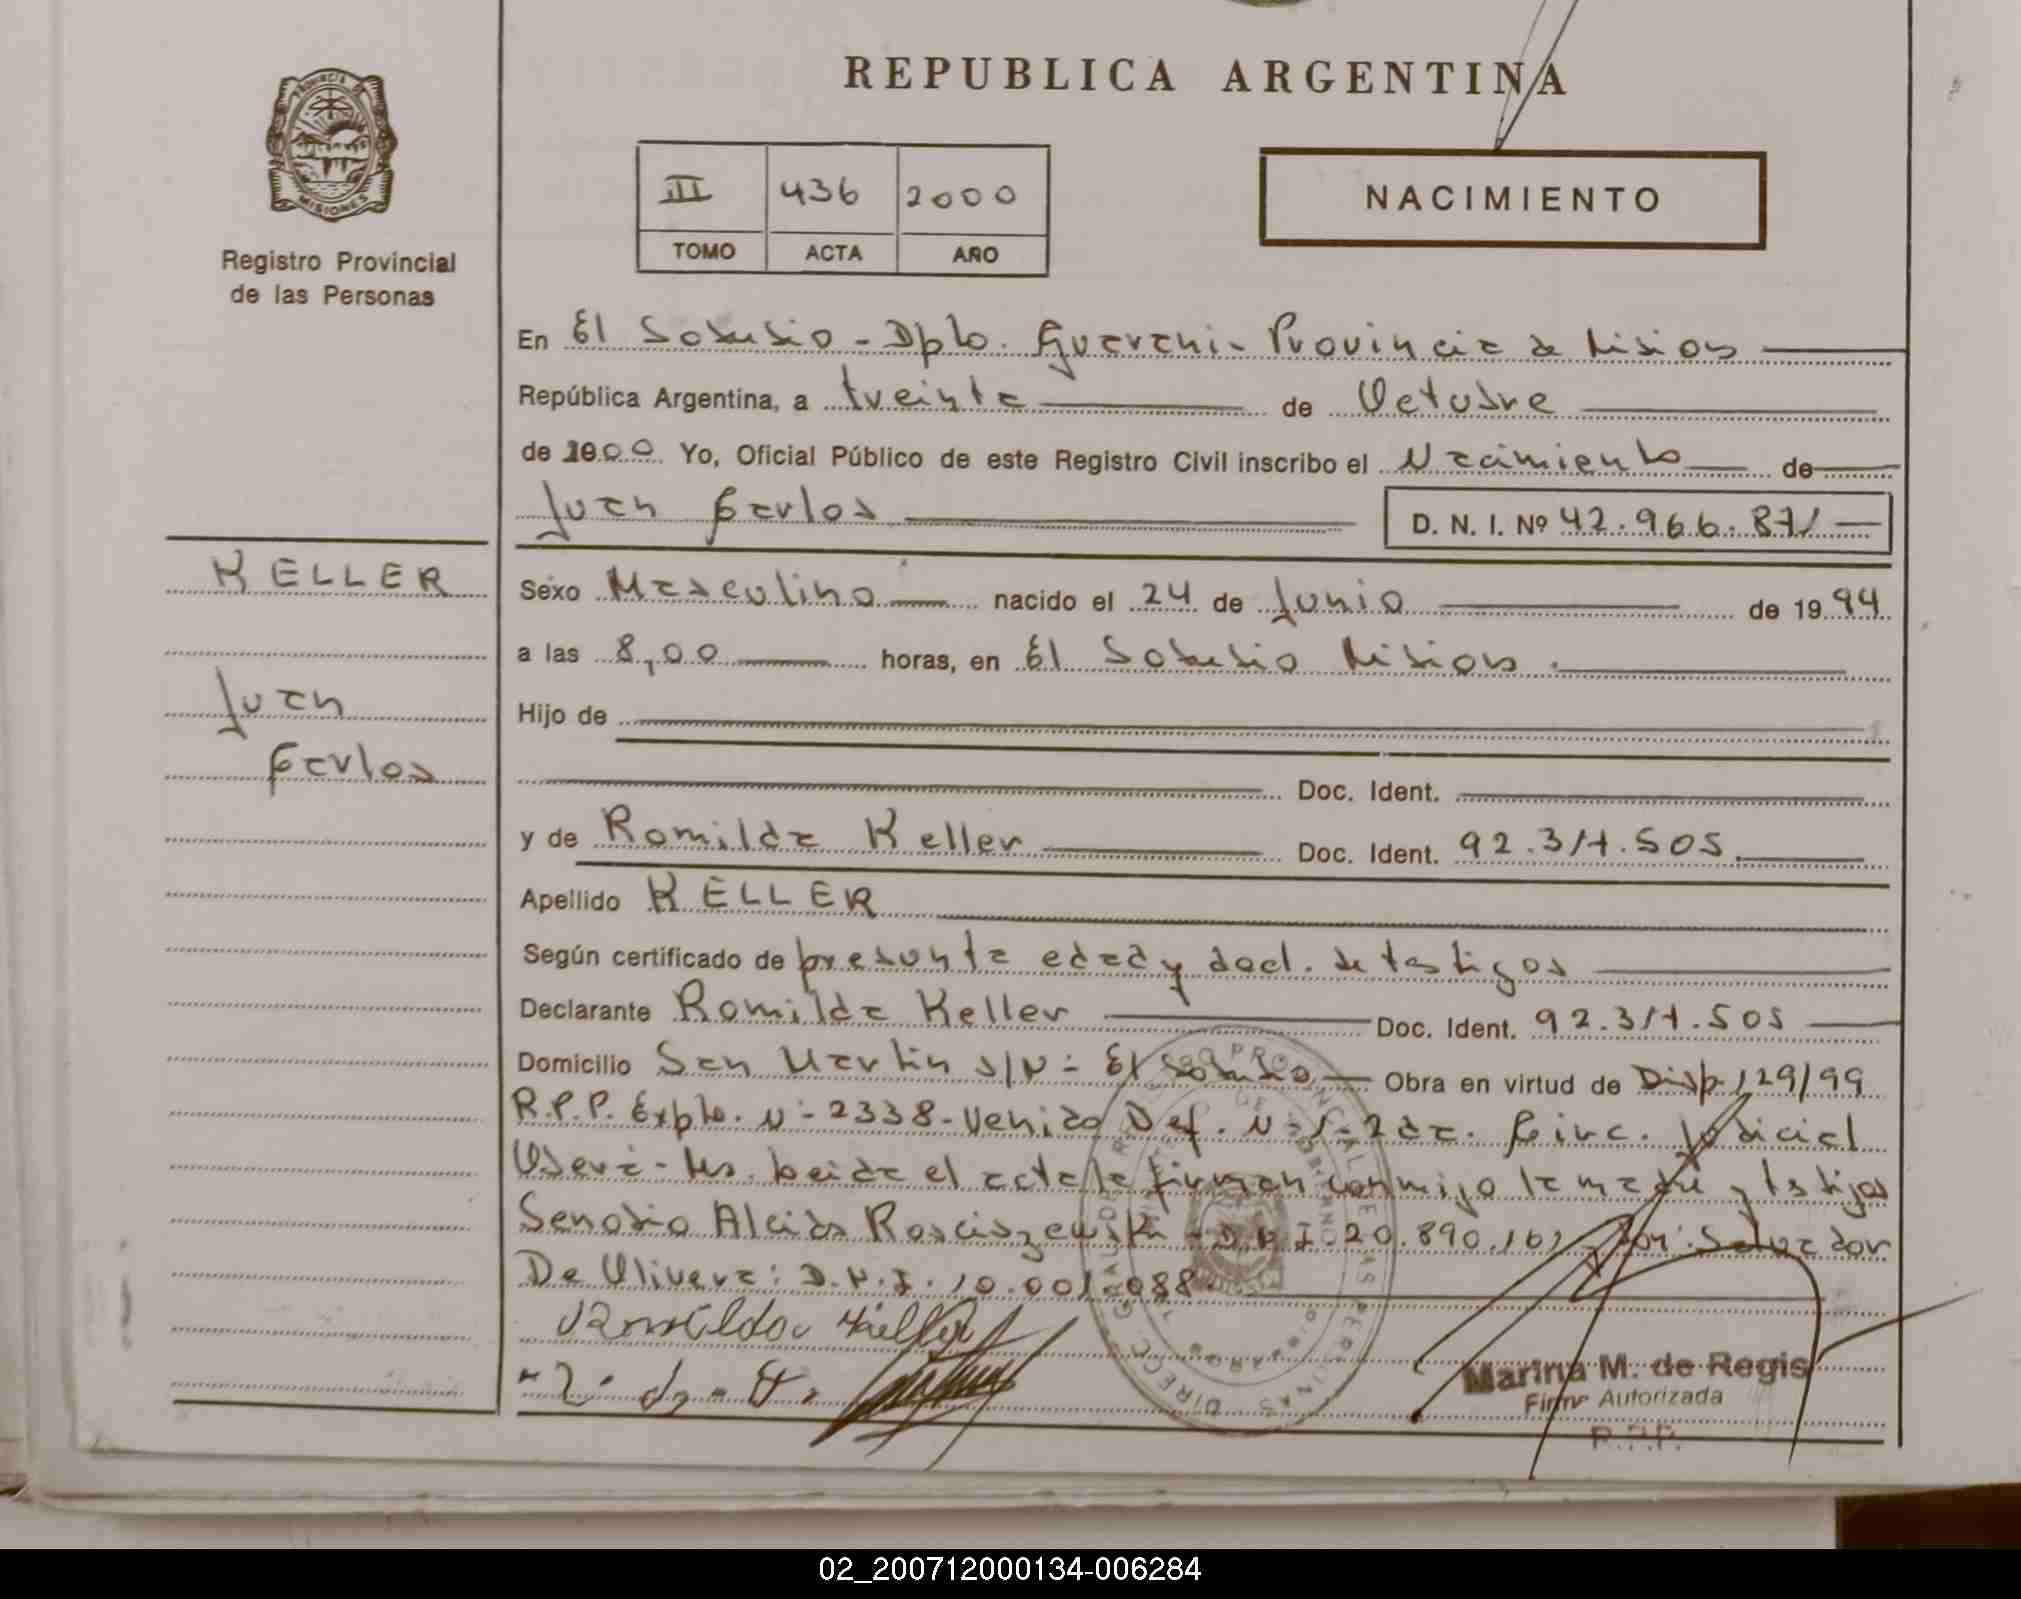 REPUBLICA ARGENTINA
PROVINCIA DE
MISIONES
Registro Provincial
de las Personas
III 436 2000
TOMO ACTA AÑO
NACIMIENTO
En El Soberbio - Dpto. Guarani - Provincia de Misiones
República Argentina, a treinta de Octubre
de 2000 Yo, Oficial Público de este Registro Civil inscribo el Nacimiento de
Juan Carlos D. N. I. Nº 42.966.871
KELLER
Juan
Carlos
Sexo Masculino nacido el 24 de Junio de 1994
a las 8,00 horas, en El Soberbio Misiones.
Hijo de
Doc. Ident.
y de Romilda Keller Doc. Ident. 92.311.505.
Apellido KELLER
Según certificado de presunta edad y decl. de testigos
Declarante Romilda Keller Doc. Ident. 92.311.505
Domicilio San Martin s/N - El Soberbio Obra en virtud de Disp. 129/99
R.P.P. Expte. Nº 2338 - Venido Def. Nº 1 - 2da. Circ. Judicial
Oberá - Mes. Leida el acta la firman conmigo la madre y testigos
Senobio Alcides Rosciszewski - D.N.I. 20.890.161 y Salvador
De Olivera: D.N.I. 10.001.088.
Romilda Keller
Marina M. de Regis
Firma Autorizada
R.P.P.
02_200712000134-006284